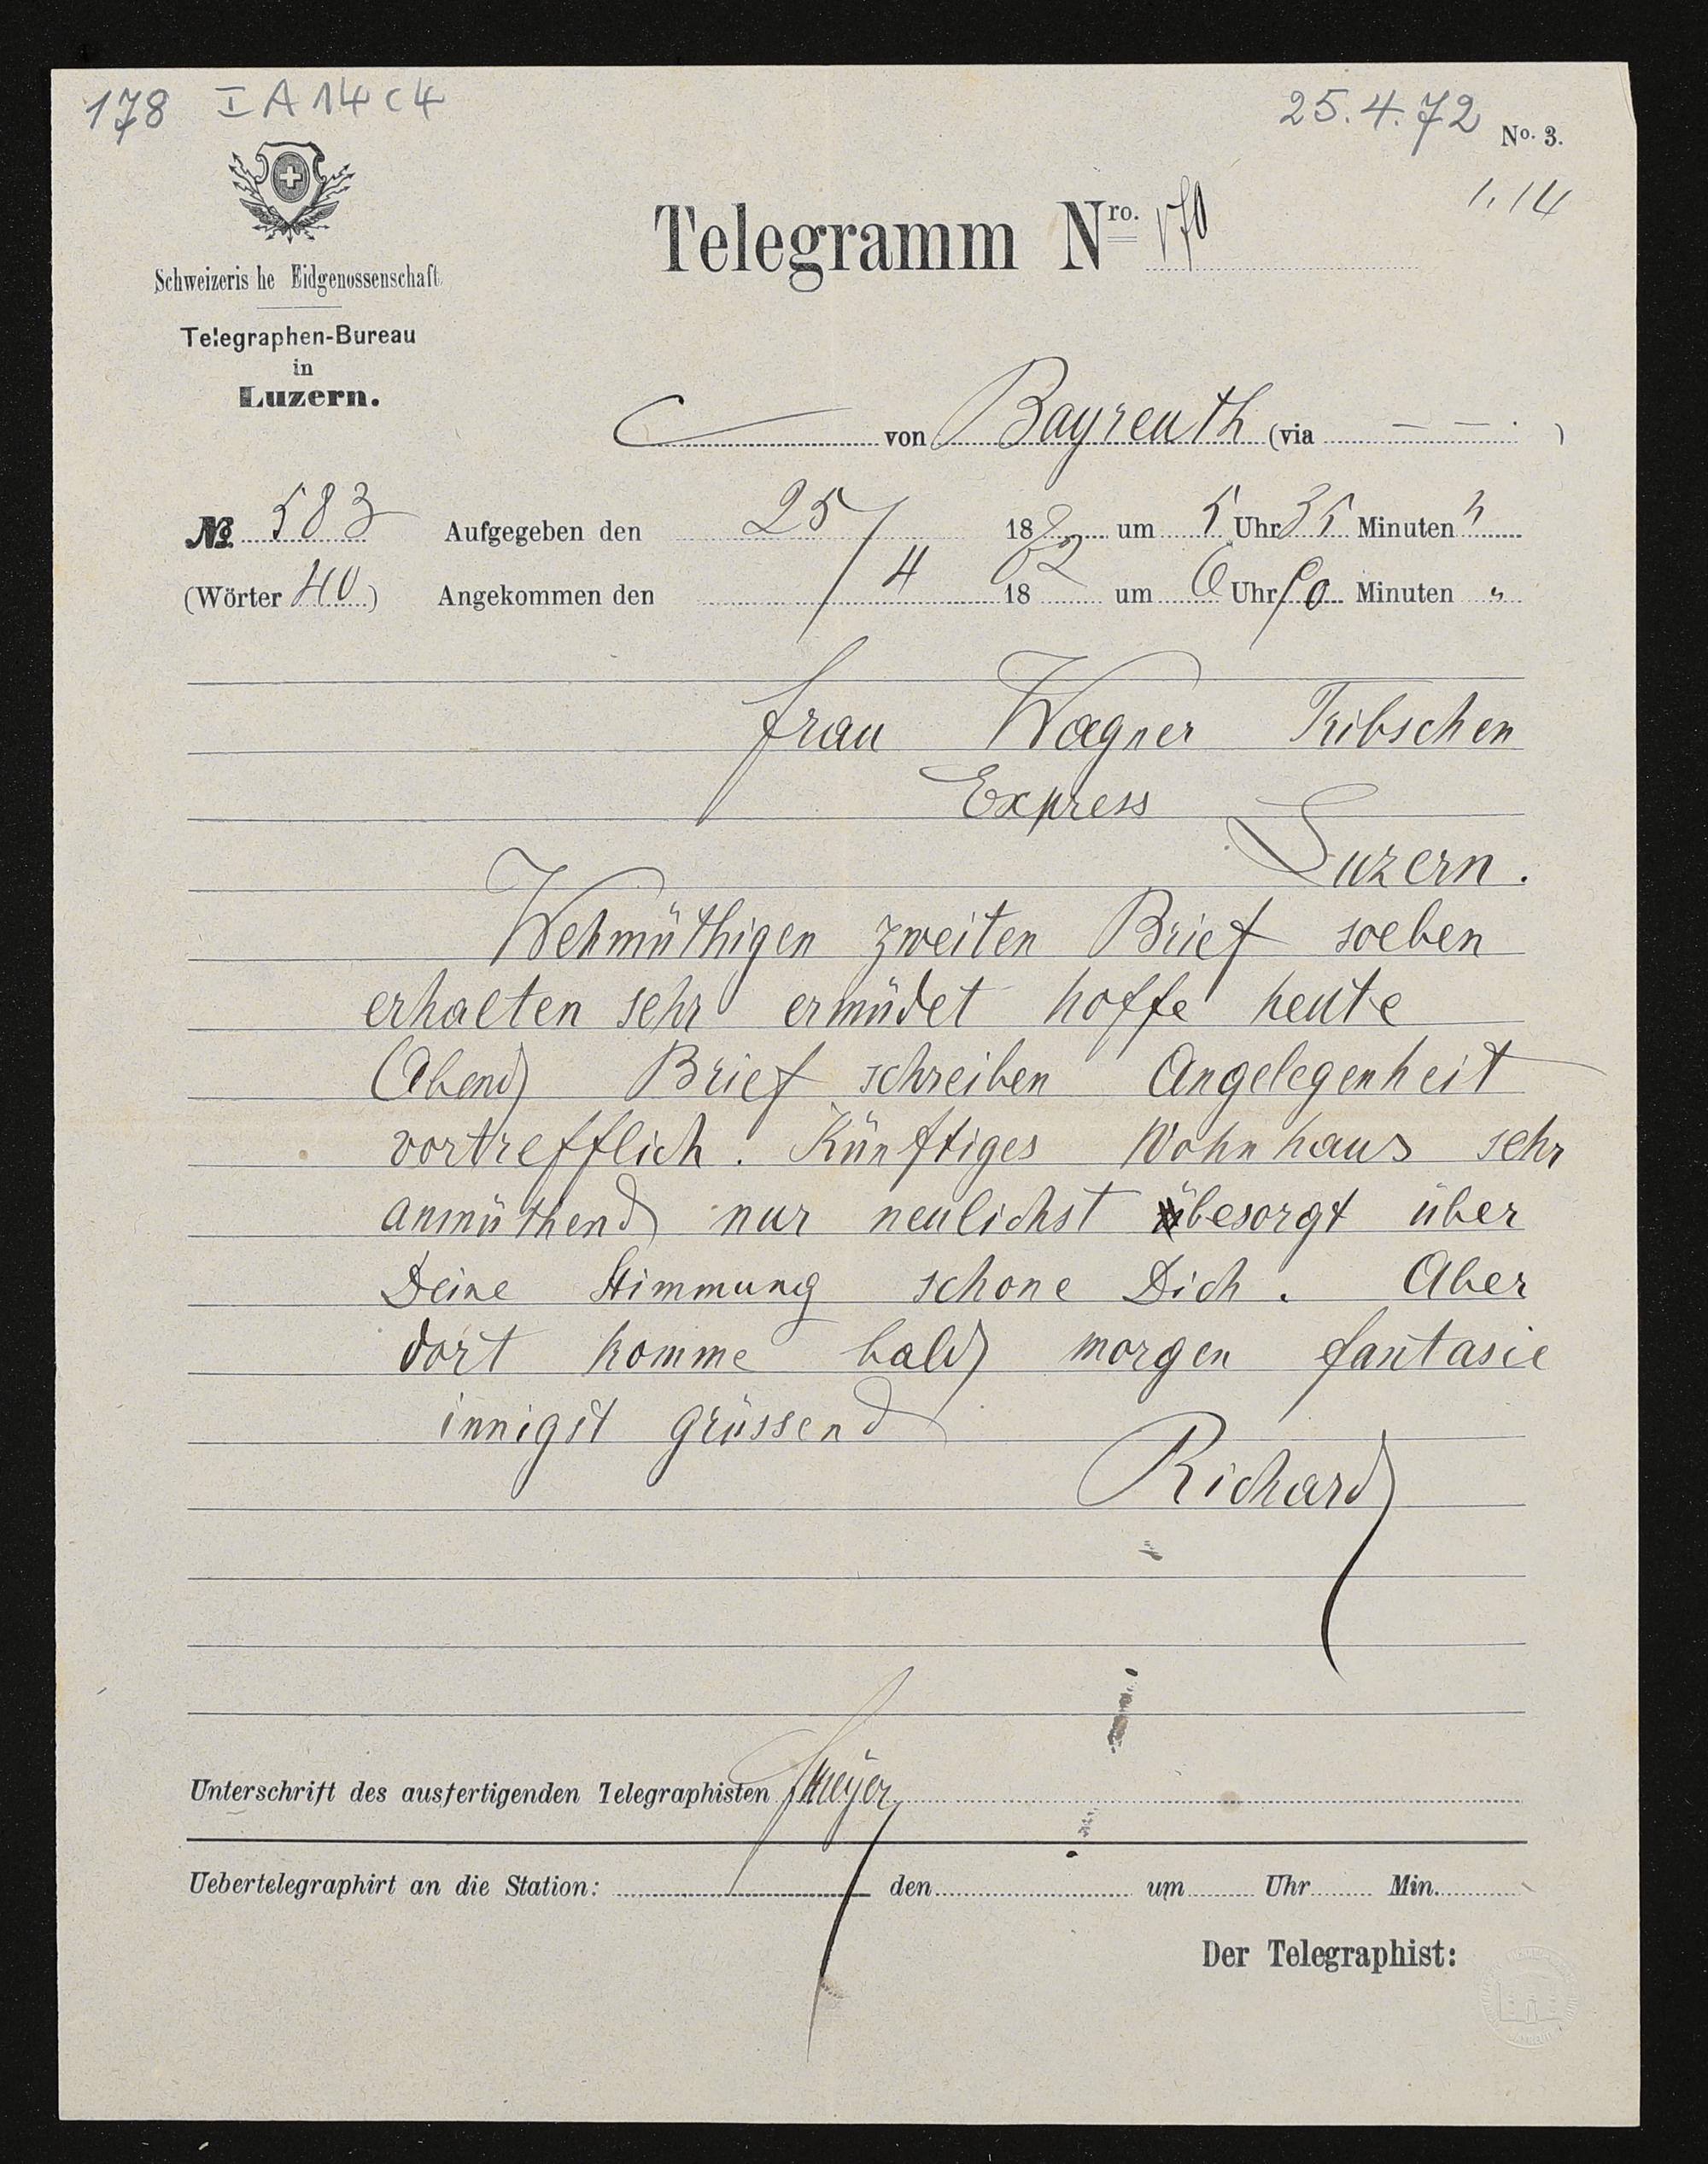 178 I A 14 c 4
25.4.72 No. 3.
1.14
Telegramm Nro. 170
Schweizeris he Eidgenossenschaft
Telegraphen-Bureau
in
Luzern.
von Bayreuth (via — — . )
No. 583 Aufgegeben den 25/4 1872 um 5 Uhr 35 Minuten
(Wörter 40) Angekommen den 18 um 6 Uhr Minuten "
Frau Wagner Tribschen
Express
Luzern.
Wehmüthigen zweiten Brief soeben
erhalten sehr ermüdet hoffe heute
Abend Brief schreiben Angelegenheit
vortrefflich. Künftiges Wohnhaus sehr
anmüthend nur neulichst besorgt über
Deine Stimmung schone Dich. Aber
dort komme bald morgen fantasie
innigst grüssend
Richard
Unterschrift des ausfertigenden Telegraphisten Meÿer
Uebertelegraphirt an die Station: den um Uhr Min.
Der Telegraphist: